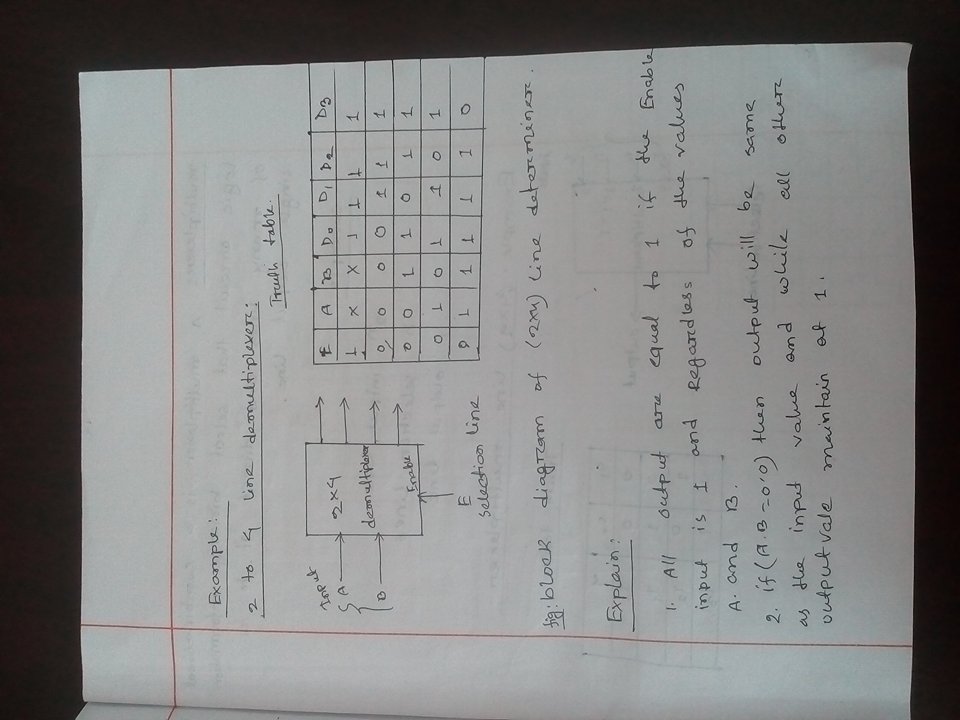 Example:
2 to 4 line demultiplexer:
Truth table.
Input
A
B
2x4
demultiplexer
Enable
E
selection line
E A B D0 D1 D2 D3
1 x x 1 1 1 1
0 0 0 0 1 1 1
0 0 1 1 0 1 1
0 1 0 1 1 0 1
0 1 1 1 1 1 0
fig: block diagram of (2x4) line determiner.
Explain:
1. All output are equal to 1 if the Enable
input is 1 and Regardless of the values
A. and B.
2. if (A.B = 0.0) then output will be same
as the input value and while all other
output vale maintain at 1.